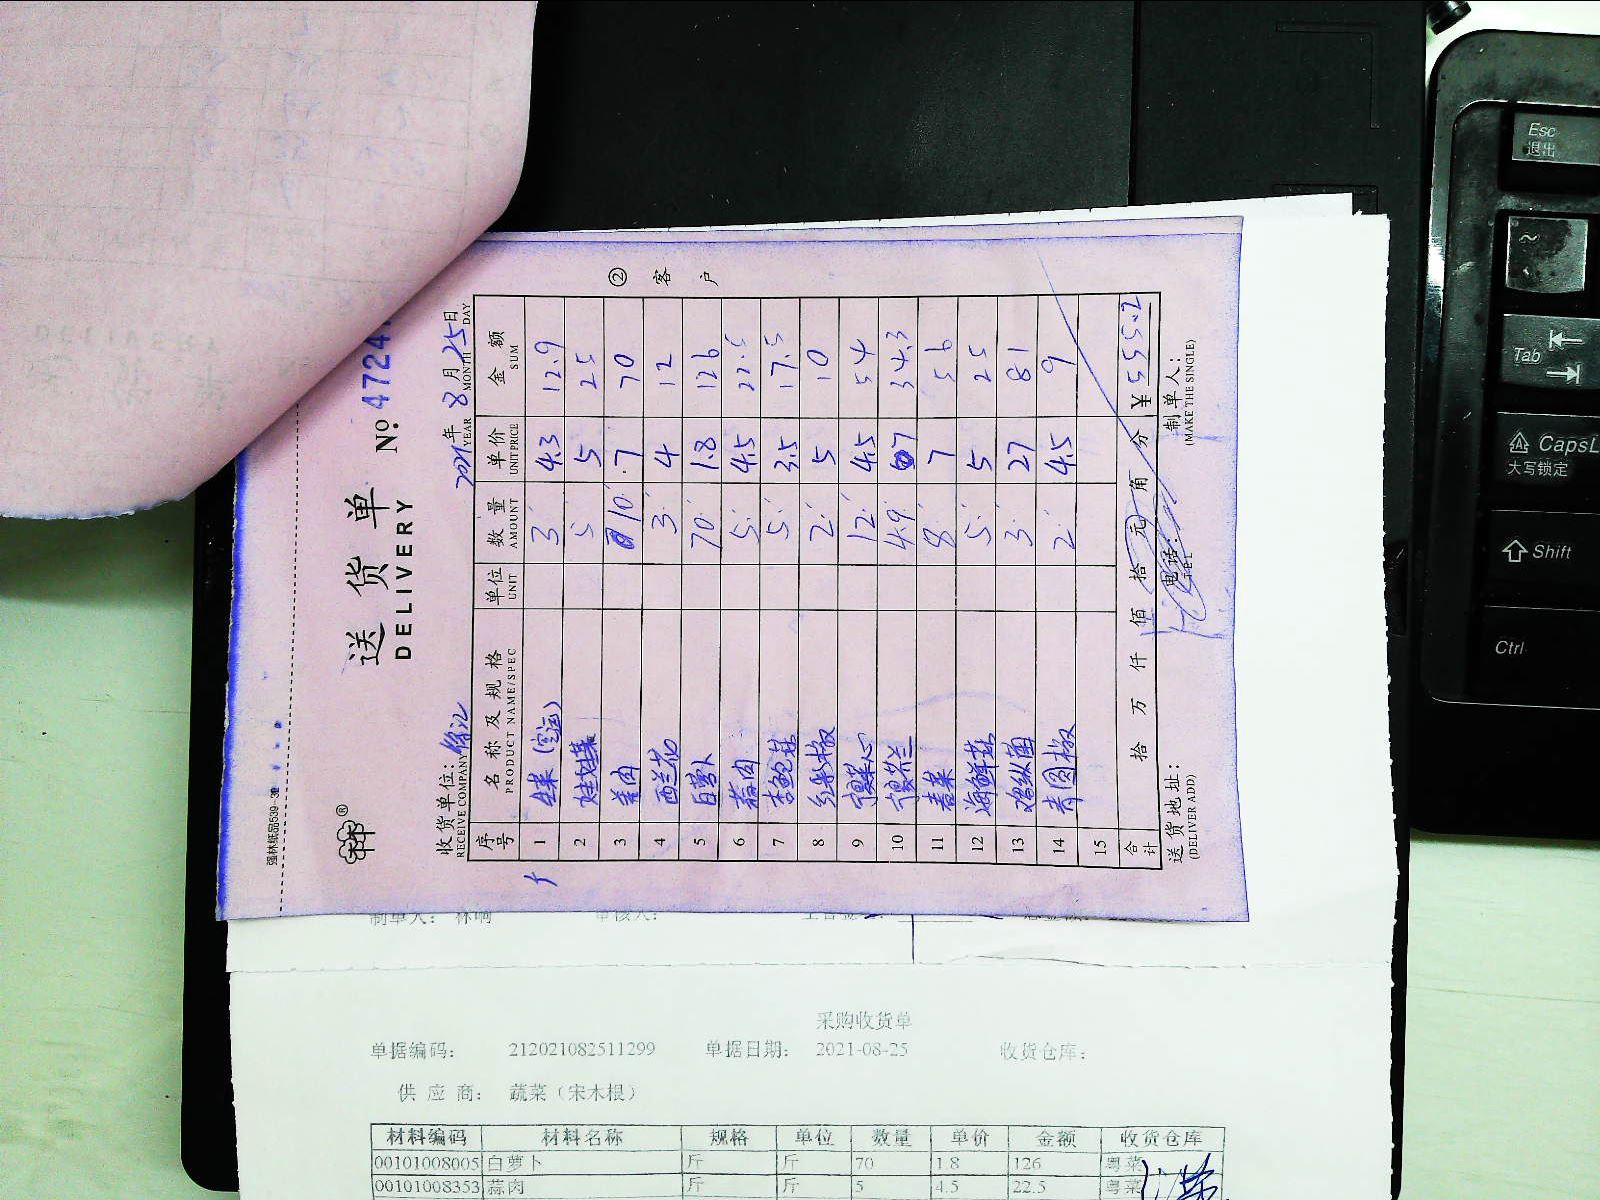 强林纸品539-3
送货单
DELIVERY
№ 4724
收货单位：
RECEIVE COMPANY
2021年 8月 25日
YEAR MONTH DAY
序号 名称及规格 单位 数量 单价 金额
PRODUCT NAME/SPEC UNIT AMOUNT UNIT PRICE SUM
1 生菜（空运） 3 4.3 12.9
2 娃娃菜 5 5 25
3 姜肉 10 7 70
4 西兰花 3 4 12
5 白萝卜 70 1.8 126
6 蒜肉 5 4.5 22.5
7 杏鲍菇 5 3.5 17.5
8 红彩椒 2 5 10
9 菜心 12 4.5 54
10 芥兰 4.9 7 34.3
11 春菜 8 7 56
12 海鲜菇 5 5 25
13 鸡纵菌 3 27 81
14 青圆椒 2 4.5 9
15
合计 拾 万 仟 佰 拾 元 角 分 ¥ 555.2
送货地址：
(DELIVER ADD)
电话：
TEL
制单人：
(MAKE THE SINGLE)
② 客户
制单人：林响 审核人：
采购收货单
单据编码： 212021082511299 单据日期： 2021-08-25 收货仓库：
供应商： 蔬菜（宋木根）
材料编码 材料名称 规格 单位 数量 单价 金额 收货仓库
00101008005 白萝卜 斤 斤 70 1.8 126 粤菜
00101008353 蒜肉 斤 斤 5 4.5 22.5 粤菜
Esc
退出
~
Tab
CapsL
大写锁定
Shift
Ctrl